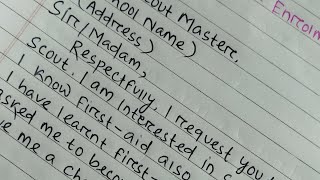 out Master,
Enrolm
(Address)
ool Name)
Sir/Madam,
Respectfully, I request you
Scout. I am interested in
I know first-aid also
I have learnt first-
asked me to beco
me a cha